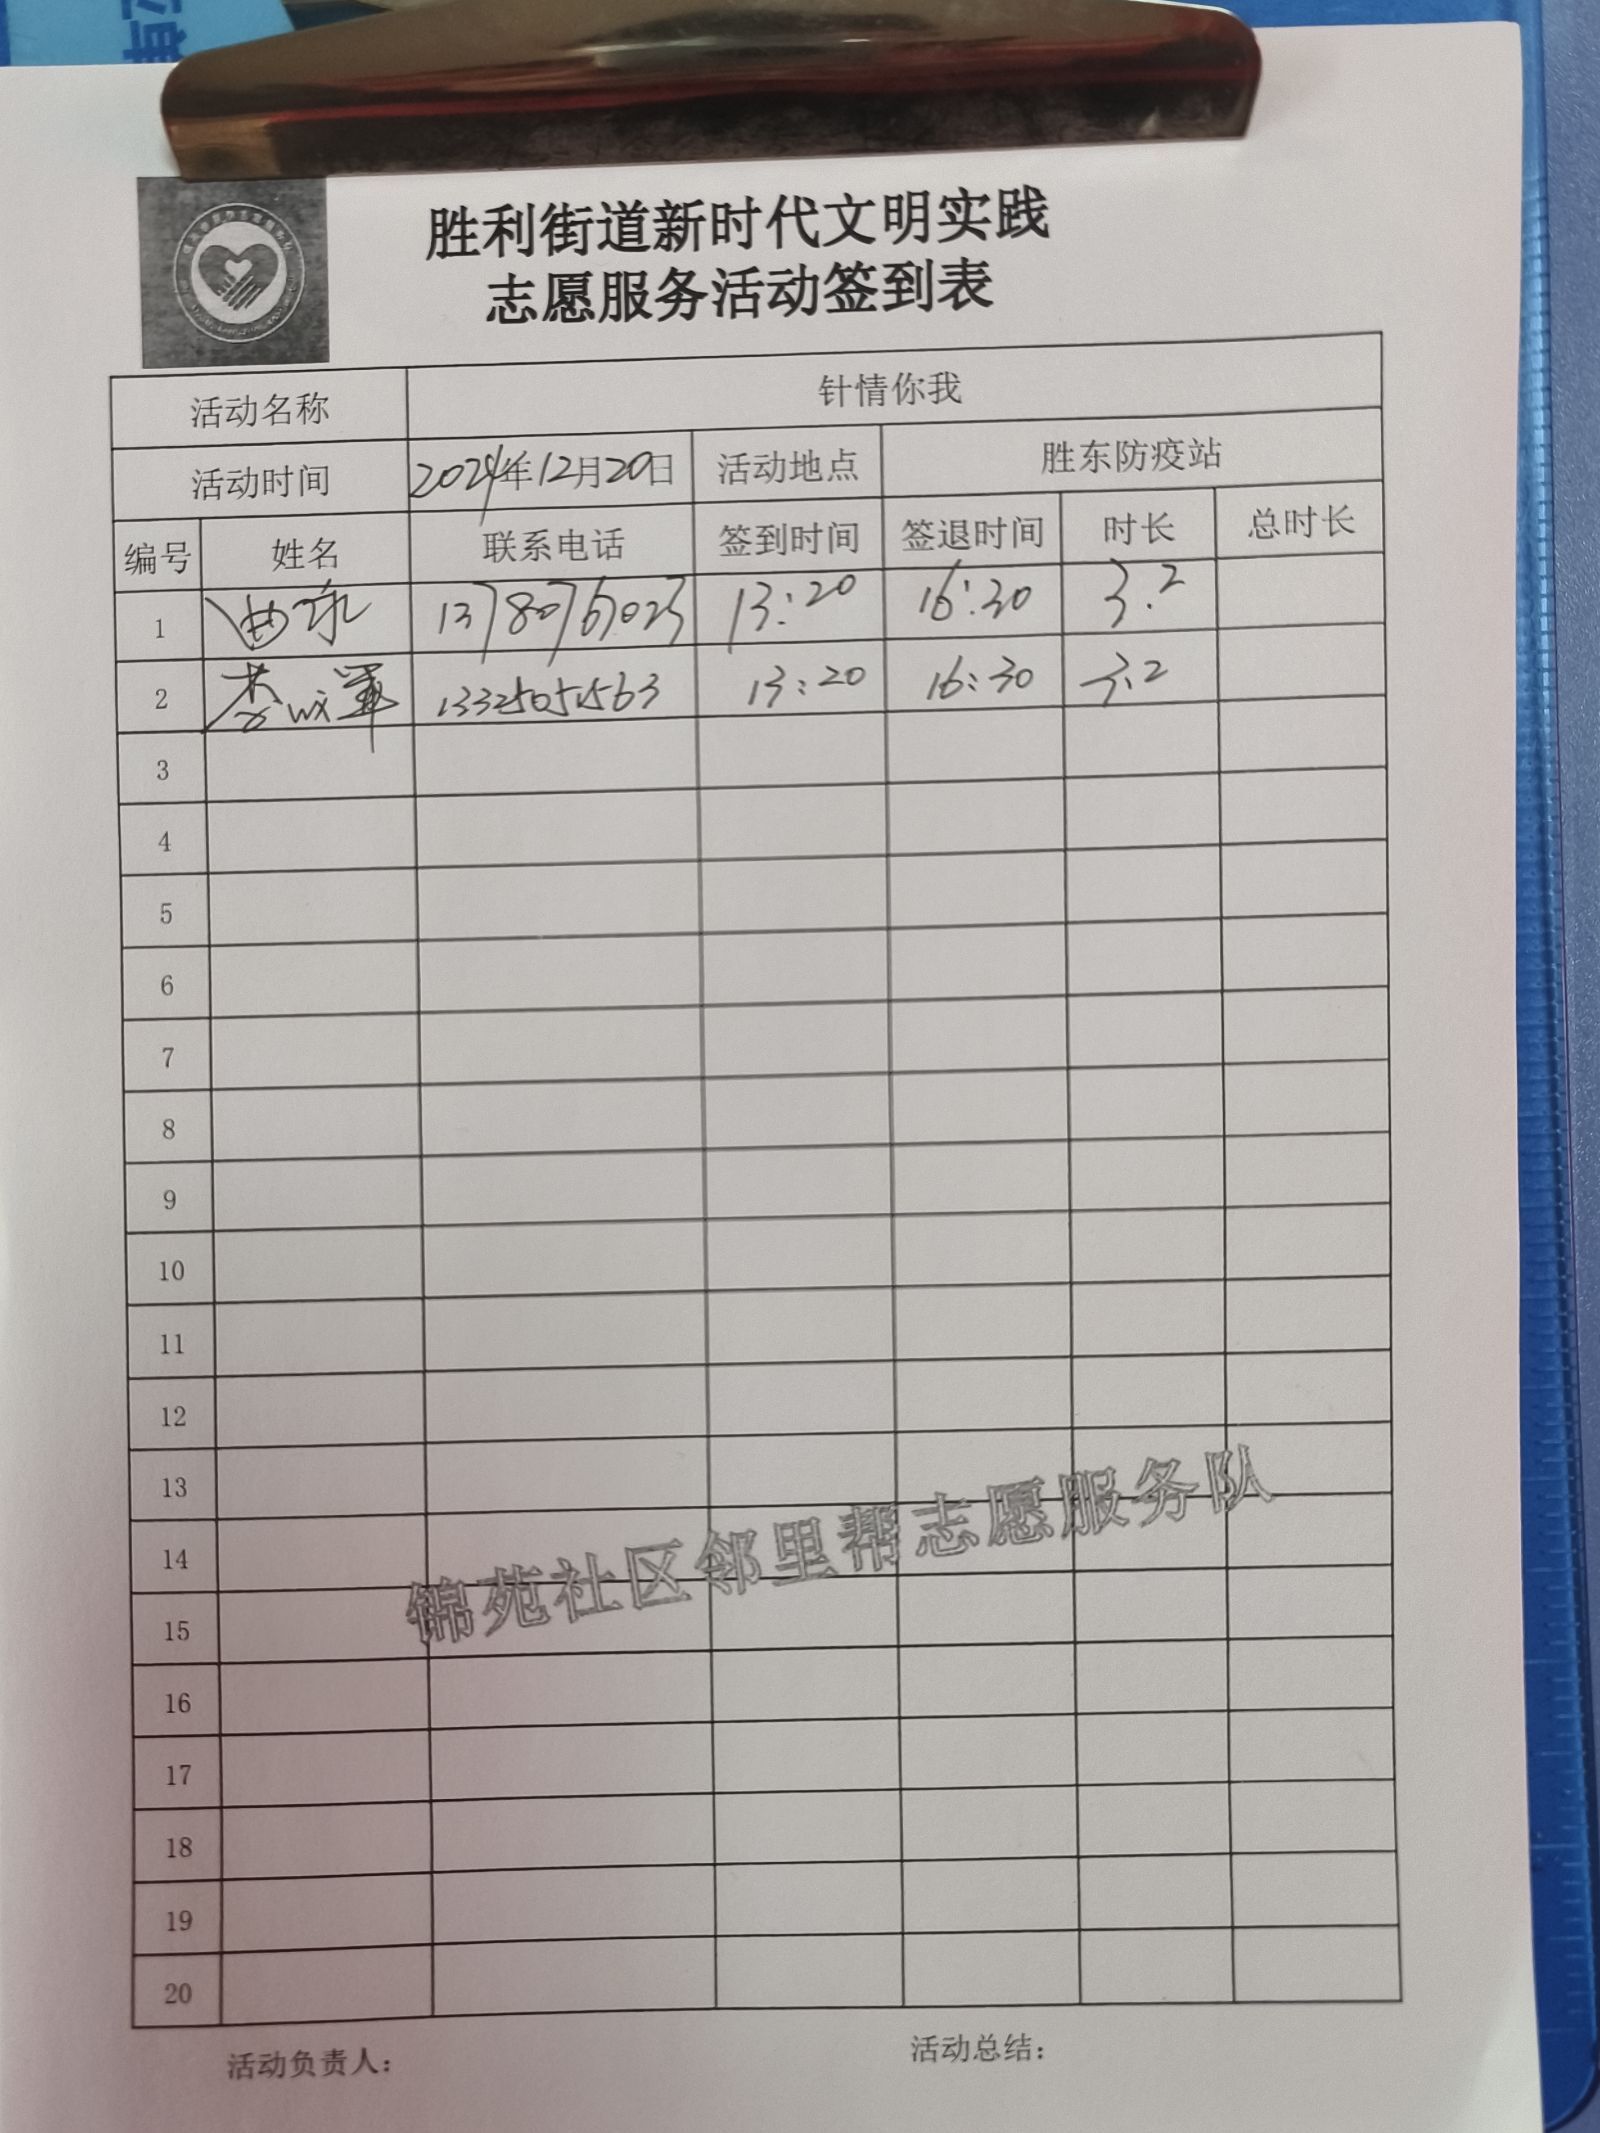 胜利街道新时代文明实践
志愿服务活动签到表
活动名称 针情你我
活动时间 2024年12月20日 活动地点 胜东防疫站
编号 姓名 联系电话 签到时间 签退时间 时长 总时长
1 曲 13780767023 13:20 16:30 3.2
2 李 13325051563 13:20 16:30 3.2
3
4
5
6
7
8
9
10
11
12
13
14
15
16
17
18
19
20
锦苑社区邻里帮志愿服务队
活动负责人: 活动总结: